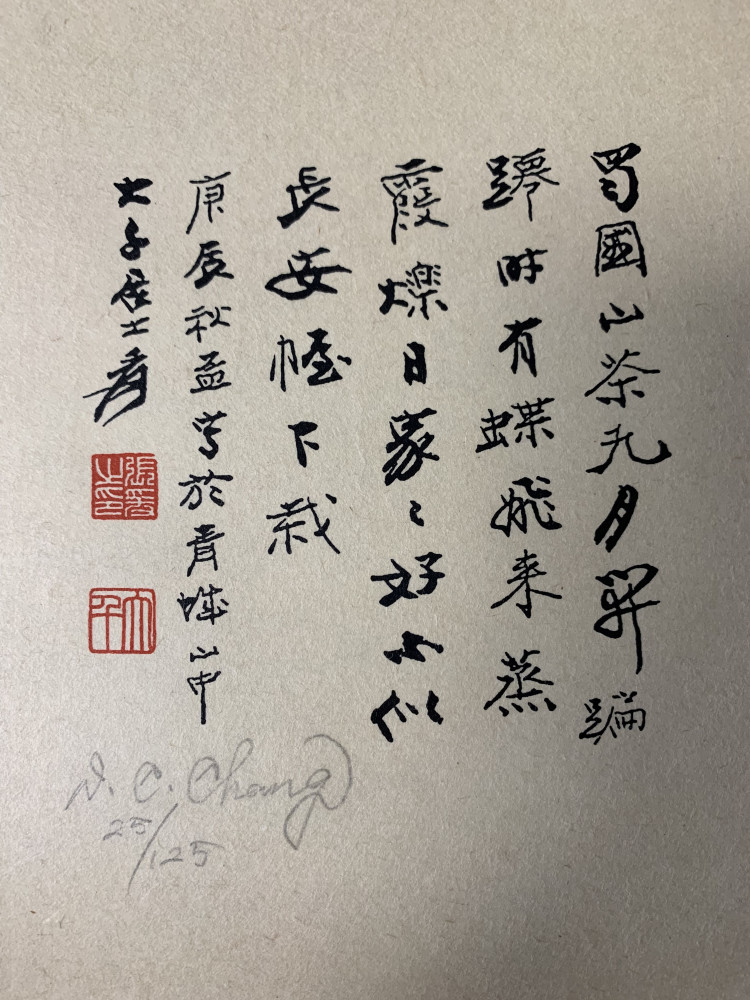 蜀國山茶九月開蹁
躚時有蝶飛來蒸
霞爍日家々好不似
長安幄下栽
庚辰秋孟寫於青城山中
大千居士爰
張爰之印
大千
D. C. Chang
25/125